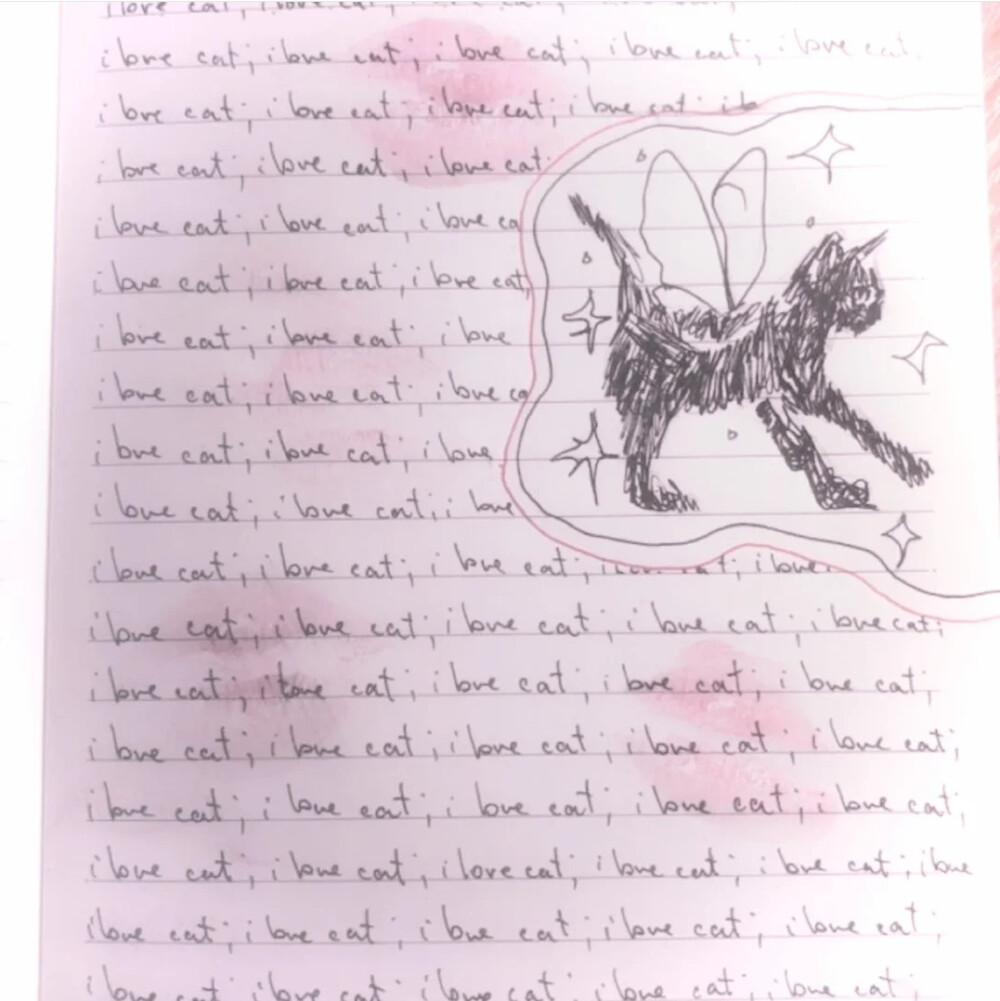 i love cat; i love cat; i love cat; i love cat;
i love cat; i love cat; i love cat; i love cat; i love cat.
i love cat; i love cat; i love cat; i love cat; i lo
i love cat; i love cat; i love cat;
i love cat; i love cat; i love ca
i love cat; i love cat; i love cat,
i love cat; i love cat; i love
i love cat; i love cat; i love ca
i love cat; i love cat; i love
i love cat; i love cat; i love
i love cat; i love cat; i love cat; i love
i love cat; i love cat; i love cat; i love cat; i love cat;
i love cat; i love cat; i love cat; i love cat; i love cat;
i love cat; i love cat; i love cat; i love cat; i love cat;
i love cat; i love cat; i love cat; i love cat; i love cat;
i love cat; i love cat; i love cat; i love cat; i love cat; i love
i love cat; i love cat; i love cat; i love cat; i love cat;
i love cat; i love cat; i love cat; i love cat; i love cat;